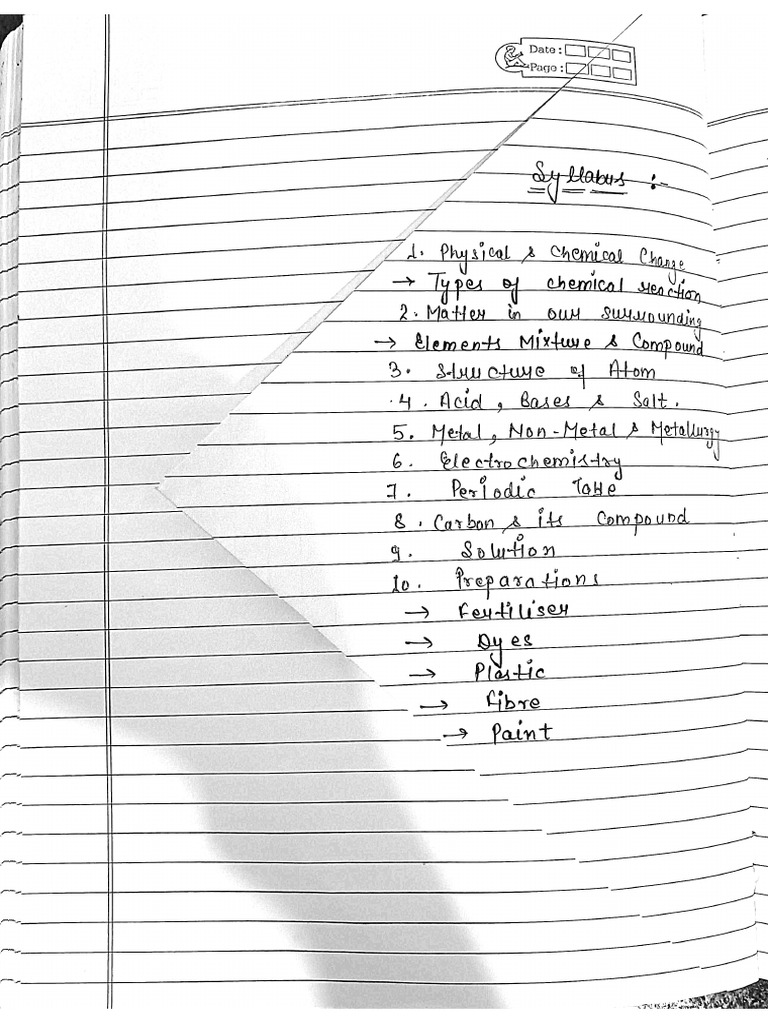 Date :
Page :
Syllabus :-
1. Physical & Chemical Change
→ Types of chemical reaction
2. Matter in our surrounding
→ Elements Mixture & Compound
3. Structure of Atom
4. Acid, Bases & Salt.
5. Metal, Non-Metal & Metallurgy
6. Electrochemistry
7. Periodic Table
8. Carbon & its Compound
9. Solution
10. Preparations
→ Fertiliser
→ Dyes
→ Plastic
→ Fibre
→ Paint